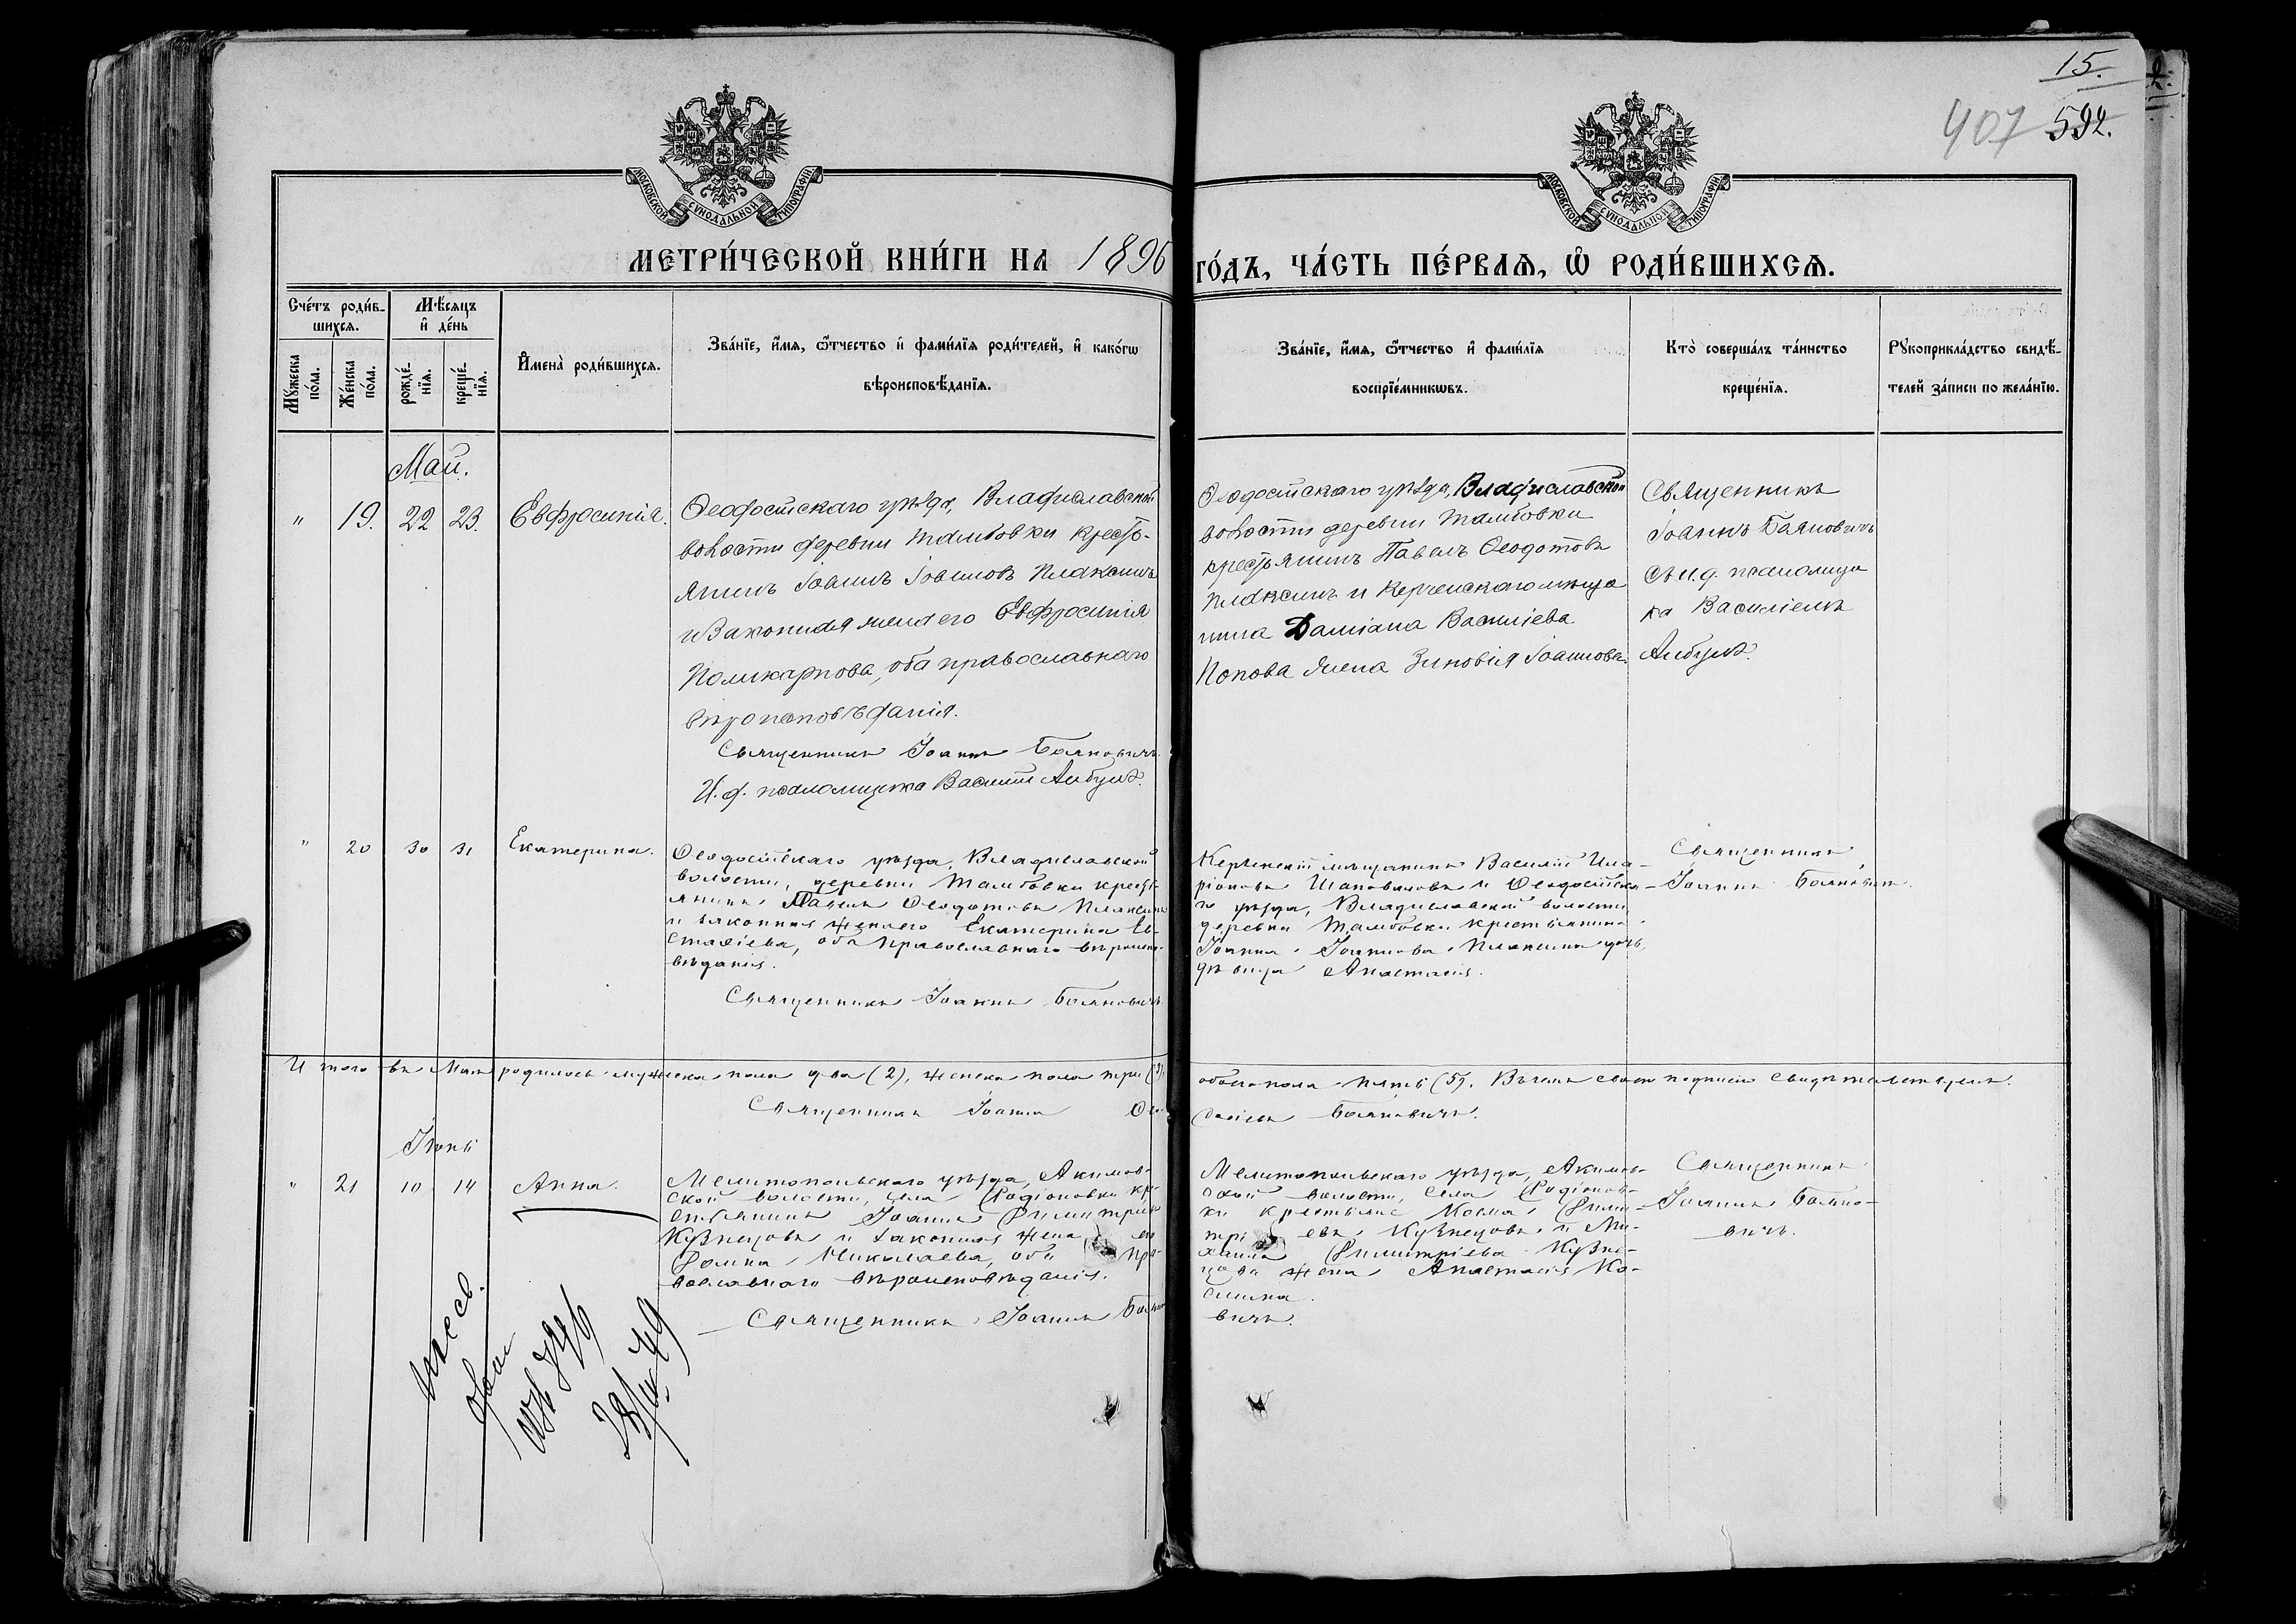 15.
407 592.
МОСКОВСКОЙ СѴНОДАЛЬНОЙ ТИПОГРАФІИ
МОСКОВСКОЙ СѴНОДАЛЬНОЙ ТИПОГРАФІИ
МЕТРИ́ЧЕСКОЙ КНИ́ГИ НА 1896
ГО́ДЪ, ЧА́СТЬ ПЕ́РВАѦ, Ѡ РОДИ́ВШИХСѦ.
Сче́тъ роди́в-
шихсѧ.
Мѣ́сѧцъ
и҆ де́нь
Мꙋ́жеска
по́ла.
Же́нска
по́ла.
рожде́-
нїѧ.
креще́-
нїѧ.
И҆мена̀ роди́вшихсѧ.
Зва́нїе, и҆́мѧ, ѻ҆́тчество и҆ фами́лїѧ роди́телей, и҆ како́гѡ
вѣроисповѣ́данїѧ.
Зва́нїе, и҆́мѧ, ѻ҆́тчество и҆ фами́лїѧ
воспрїе́мникѡвъ.
Кто̀ соверша́лъ та́инство
креще́нїѧ.
Рꙋкоприкла́дство свидѣ́-
телей за́писи по жела́нїю.
Май.
" 19. 22 23. Евфросинія.
Ѳеодосійскаго уѣзда, Владиславской
волости деревни Тамбовки кресть-
янинъ Іоаннъ Іоанновъ Плаксинъ
и законная жена его Евфросинія
Поликарпова, оба православнаго
вѣроисповѣданія.
Священникъ Іоаннъ Баяновичъ.
И. д. псаломщика Василій Амбулъ.
Ѳеодосійскаго уѣзда, Владиславской
волости деревни Тамбовки
крестьянинъ Павелъ Ѳеодотовъ
Плаксинъ и Керченскаго мѣща
нина Даміана Василіева
Попова жена Зиновія Іоаннова.
Священникъ
Іоаннъ Баяновичъ
съ и. д. псаломщи
ка Василіемъ
" 20 30 31 Екатерина.
Ѳеодосійскаго уѣзда, Владиславской
волости, деревни Тамбовки кресть-
янинъ Павелъ Ѳеодотовъ Плаксинъ
и законная жена его Екатерина Ев-
стаѳіева, оба православнаго вѣроиспо-
вѣданія.
Священникъ Іоаннъ Баяновичъ
Керченскій мѣщанинъ Василій Ила-
ріоновъ Шаповаловъ и Ѳеодосійска-
го уѣзда, Владиславской волости
деревни Тамбовки крестьянина
Іоанна Іоаннова Плаксина дочь,
дѣвица Анастасія.
Священникъ
Іоаннъ Баяновичъ.
Итого въ Маѣ родилось мужеска пола два (2), женска пола три (3)
обоего пола пять (5). Въ чемъ своею подписью свидѣтельствуемъ.
Священникъ Іоаннъ
Баяновичъ.
Іюнь
" 21 10 14 Анна.
Мелитопольскаго уѣзда, Акимов-
ской волости, села Родіоновки кре-
стьянинъ Іоаннъ Димитріевъ
Кузнецовъ и законная жена его
Домна Николаева, оба пра-
вославнаго вѣроисповѣданія.
Священникъ Іоаннъ Баяно
Мелитопольскаго уѣзда, Акимов-
ской волости, села Родіонов-
ки крестьяне Косма Дими-
тріевъ Кузнецовъ и Ми-
хаила Димитріева Кузне-
цова жена Анастасія Ко-
смина.
вичъ.
Священникъ
Іоаннъ Баяно-
вичъ.